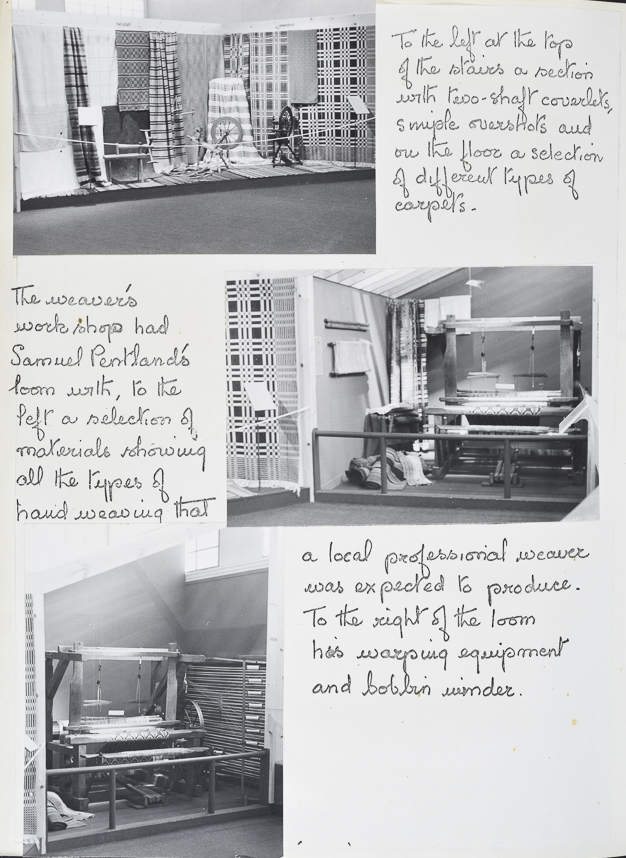 To the left at the top
of the stairs a section
with two-shaft coverlets,
simple overshots and
on the floor a selection
of different types of
carpets.
The weaver's
work shop had
Samuel Pentland's
loom with, to the
left a selection of
materials showing
all the types of
hand weaving that
a local professional weaver
was expected to produce.
To the right of the loom
his warping equipment
and bobbin winder.